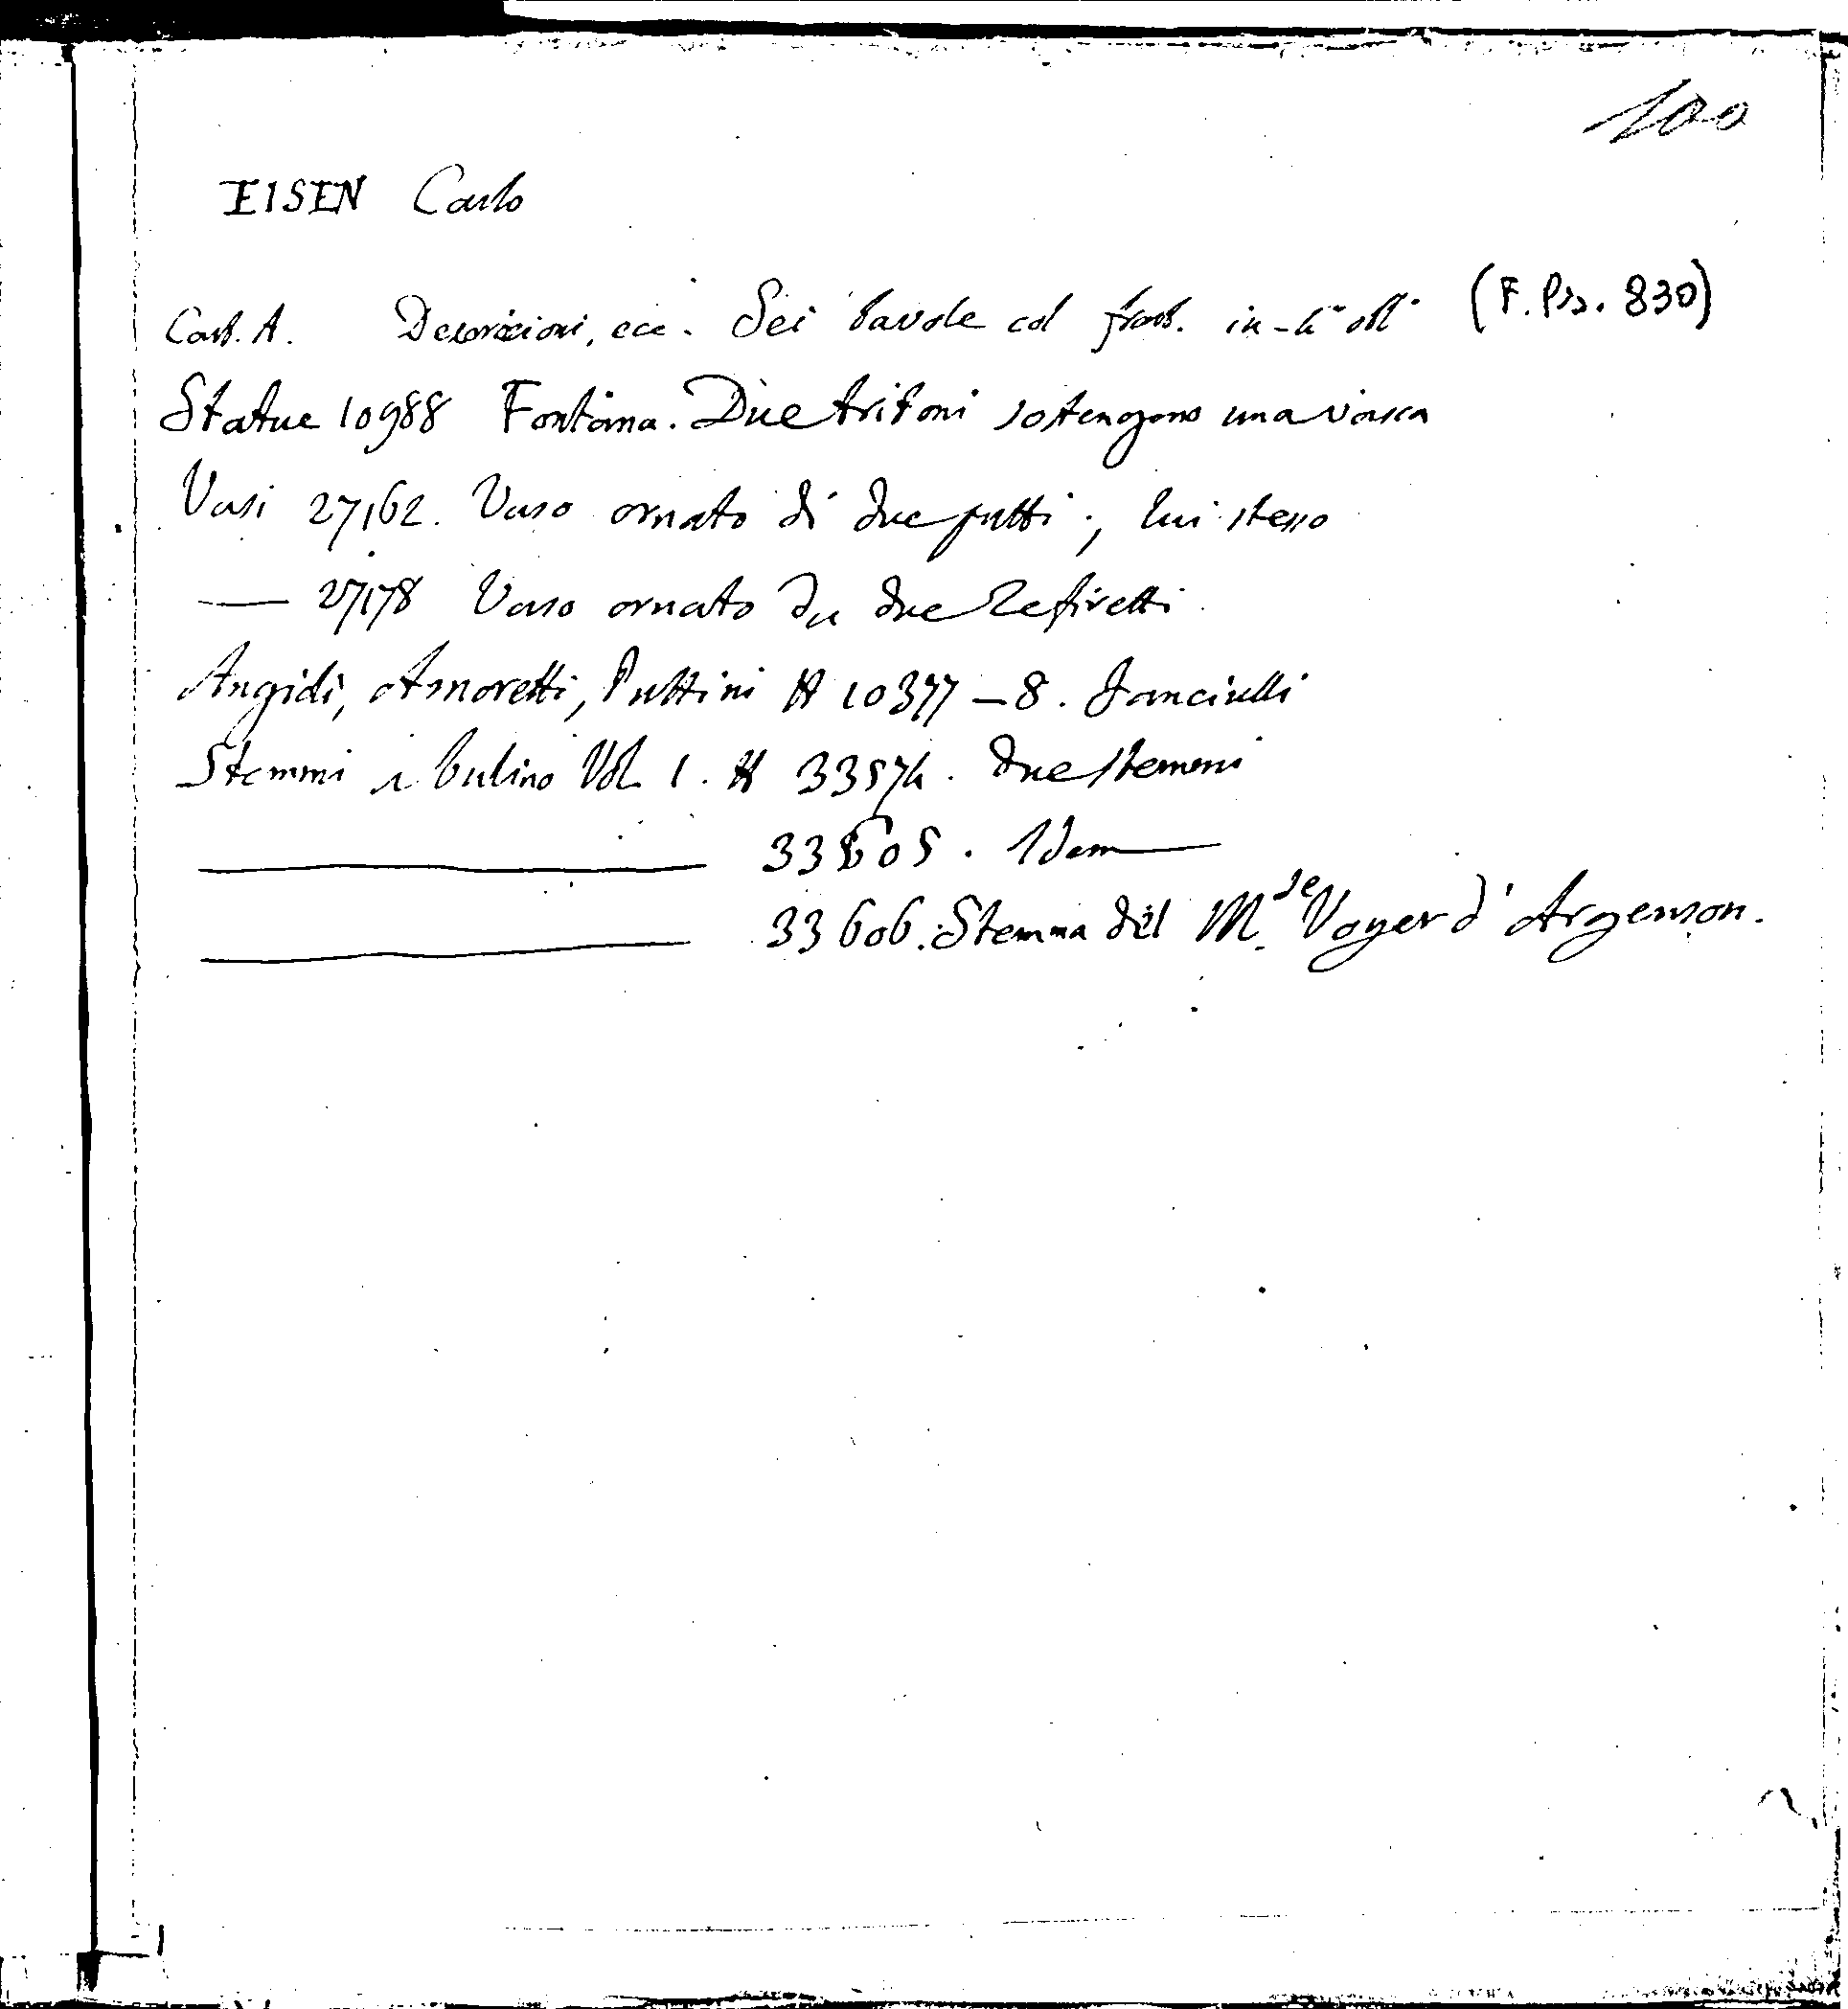 100
EISEN Carlo
Cart. A. Decorazioni, ecc. Sei tavole col front. in-4° obl° (F. Pis. 830)
Statue 10988 Fontana. Due tritoni sostengono una vasca
Vasi 27162. Vaso ornato di due putti; lui stesso
— 27178 Vaso ornato da due Zefiretti
Angioli, Amoretti, Puttini H 10377-8. Fanciulli
Stemmi a bulino Vol. 1. H 33574. Due stemmi
— 33605. Idem —
— 33606. Stemma del M.se Voyer d'Argenson.